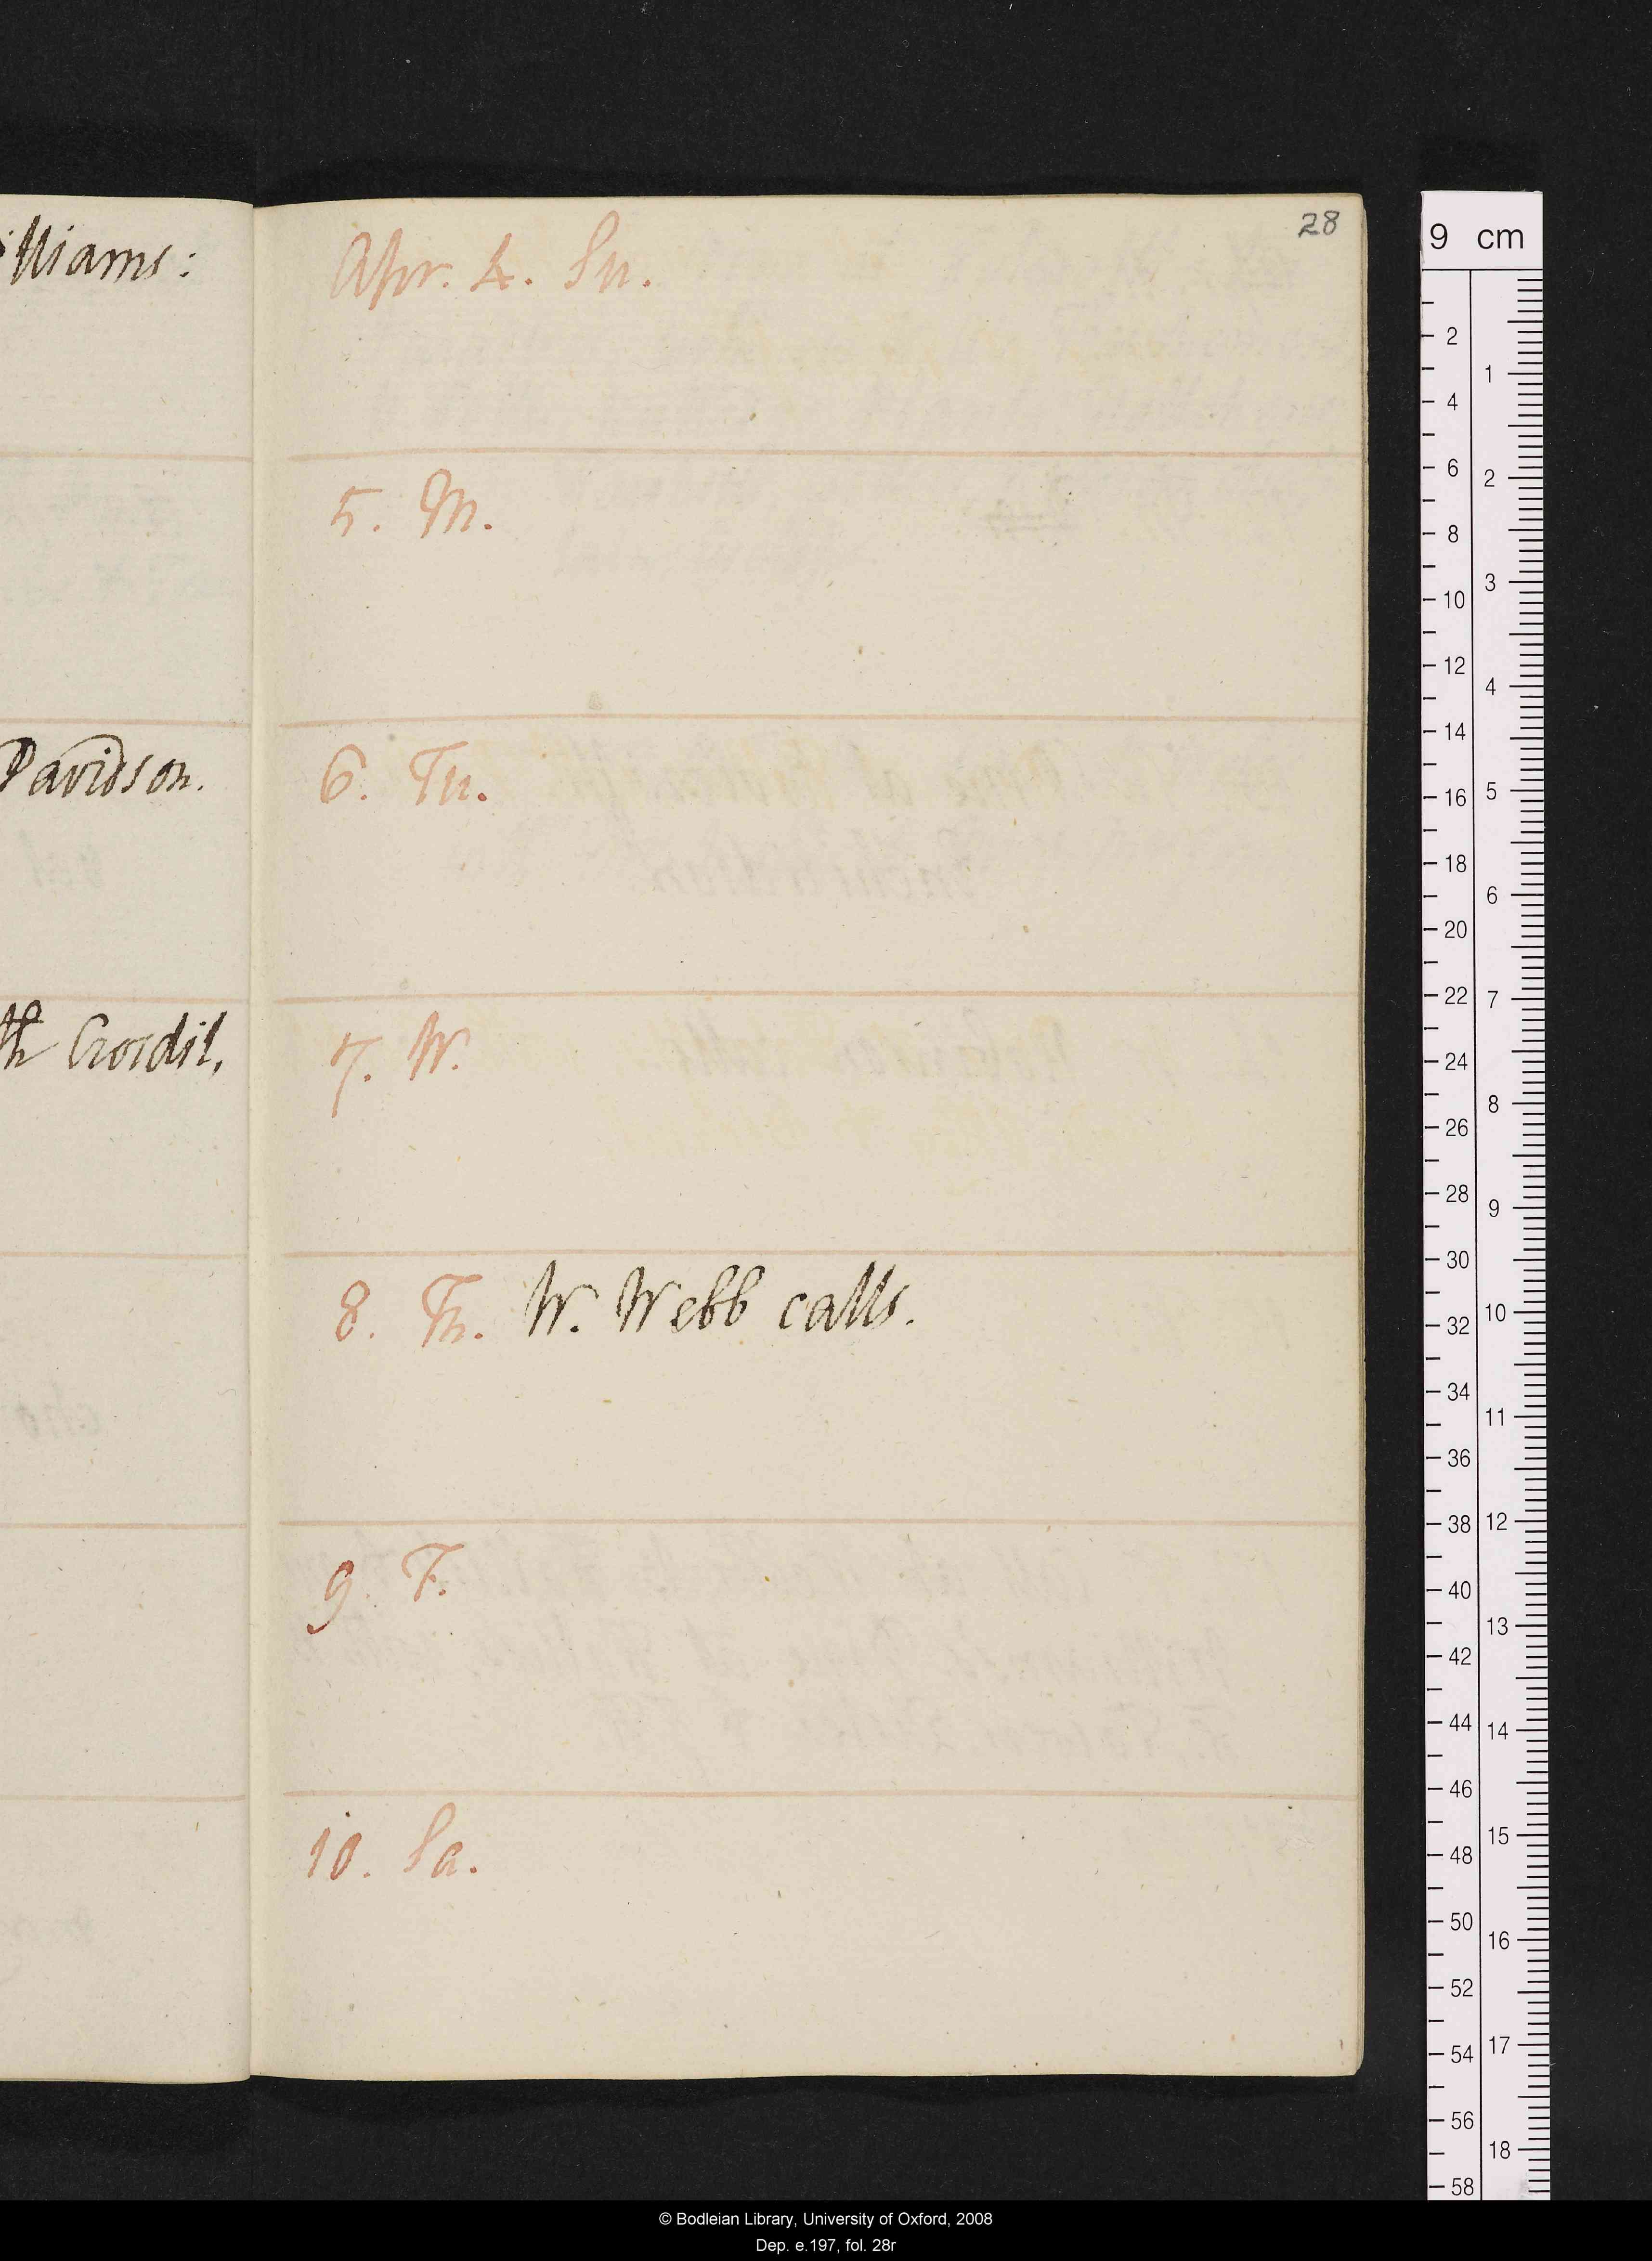 illiams:
Davidson.
th Crosdil,
28
Apr. 4. Su.
5. M.
6. Tu.
7. W.
8. Th. W. Webb calls.
9. F.
10. Sa.
9 cm
2
4
6
8
10
12
14
16
18
20
22
24
26
28
30
32
34
36
38
40
42
44
46
48
50
52
54
56
58
1
2
3
4
5
6
7
8
9
10
11
12
13
14
15
16
17
18
© Bodleian Library, University of Oxford, 2008
Dep. e.197, fol. 28r